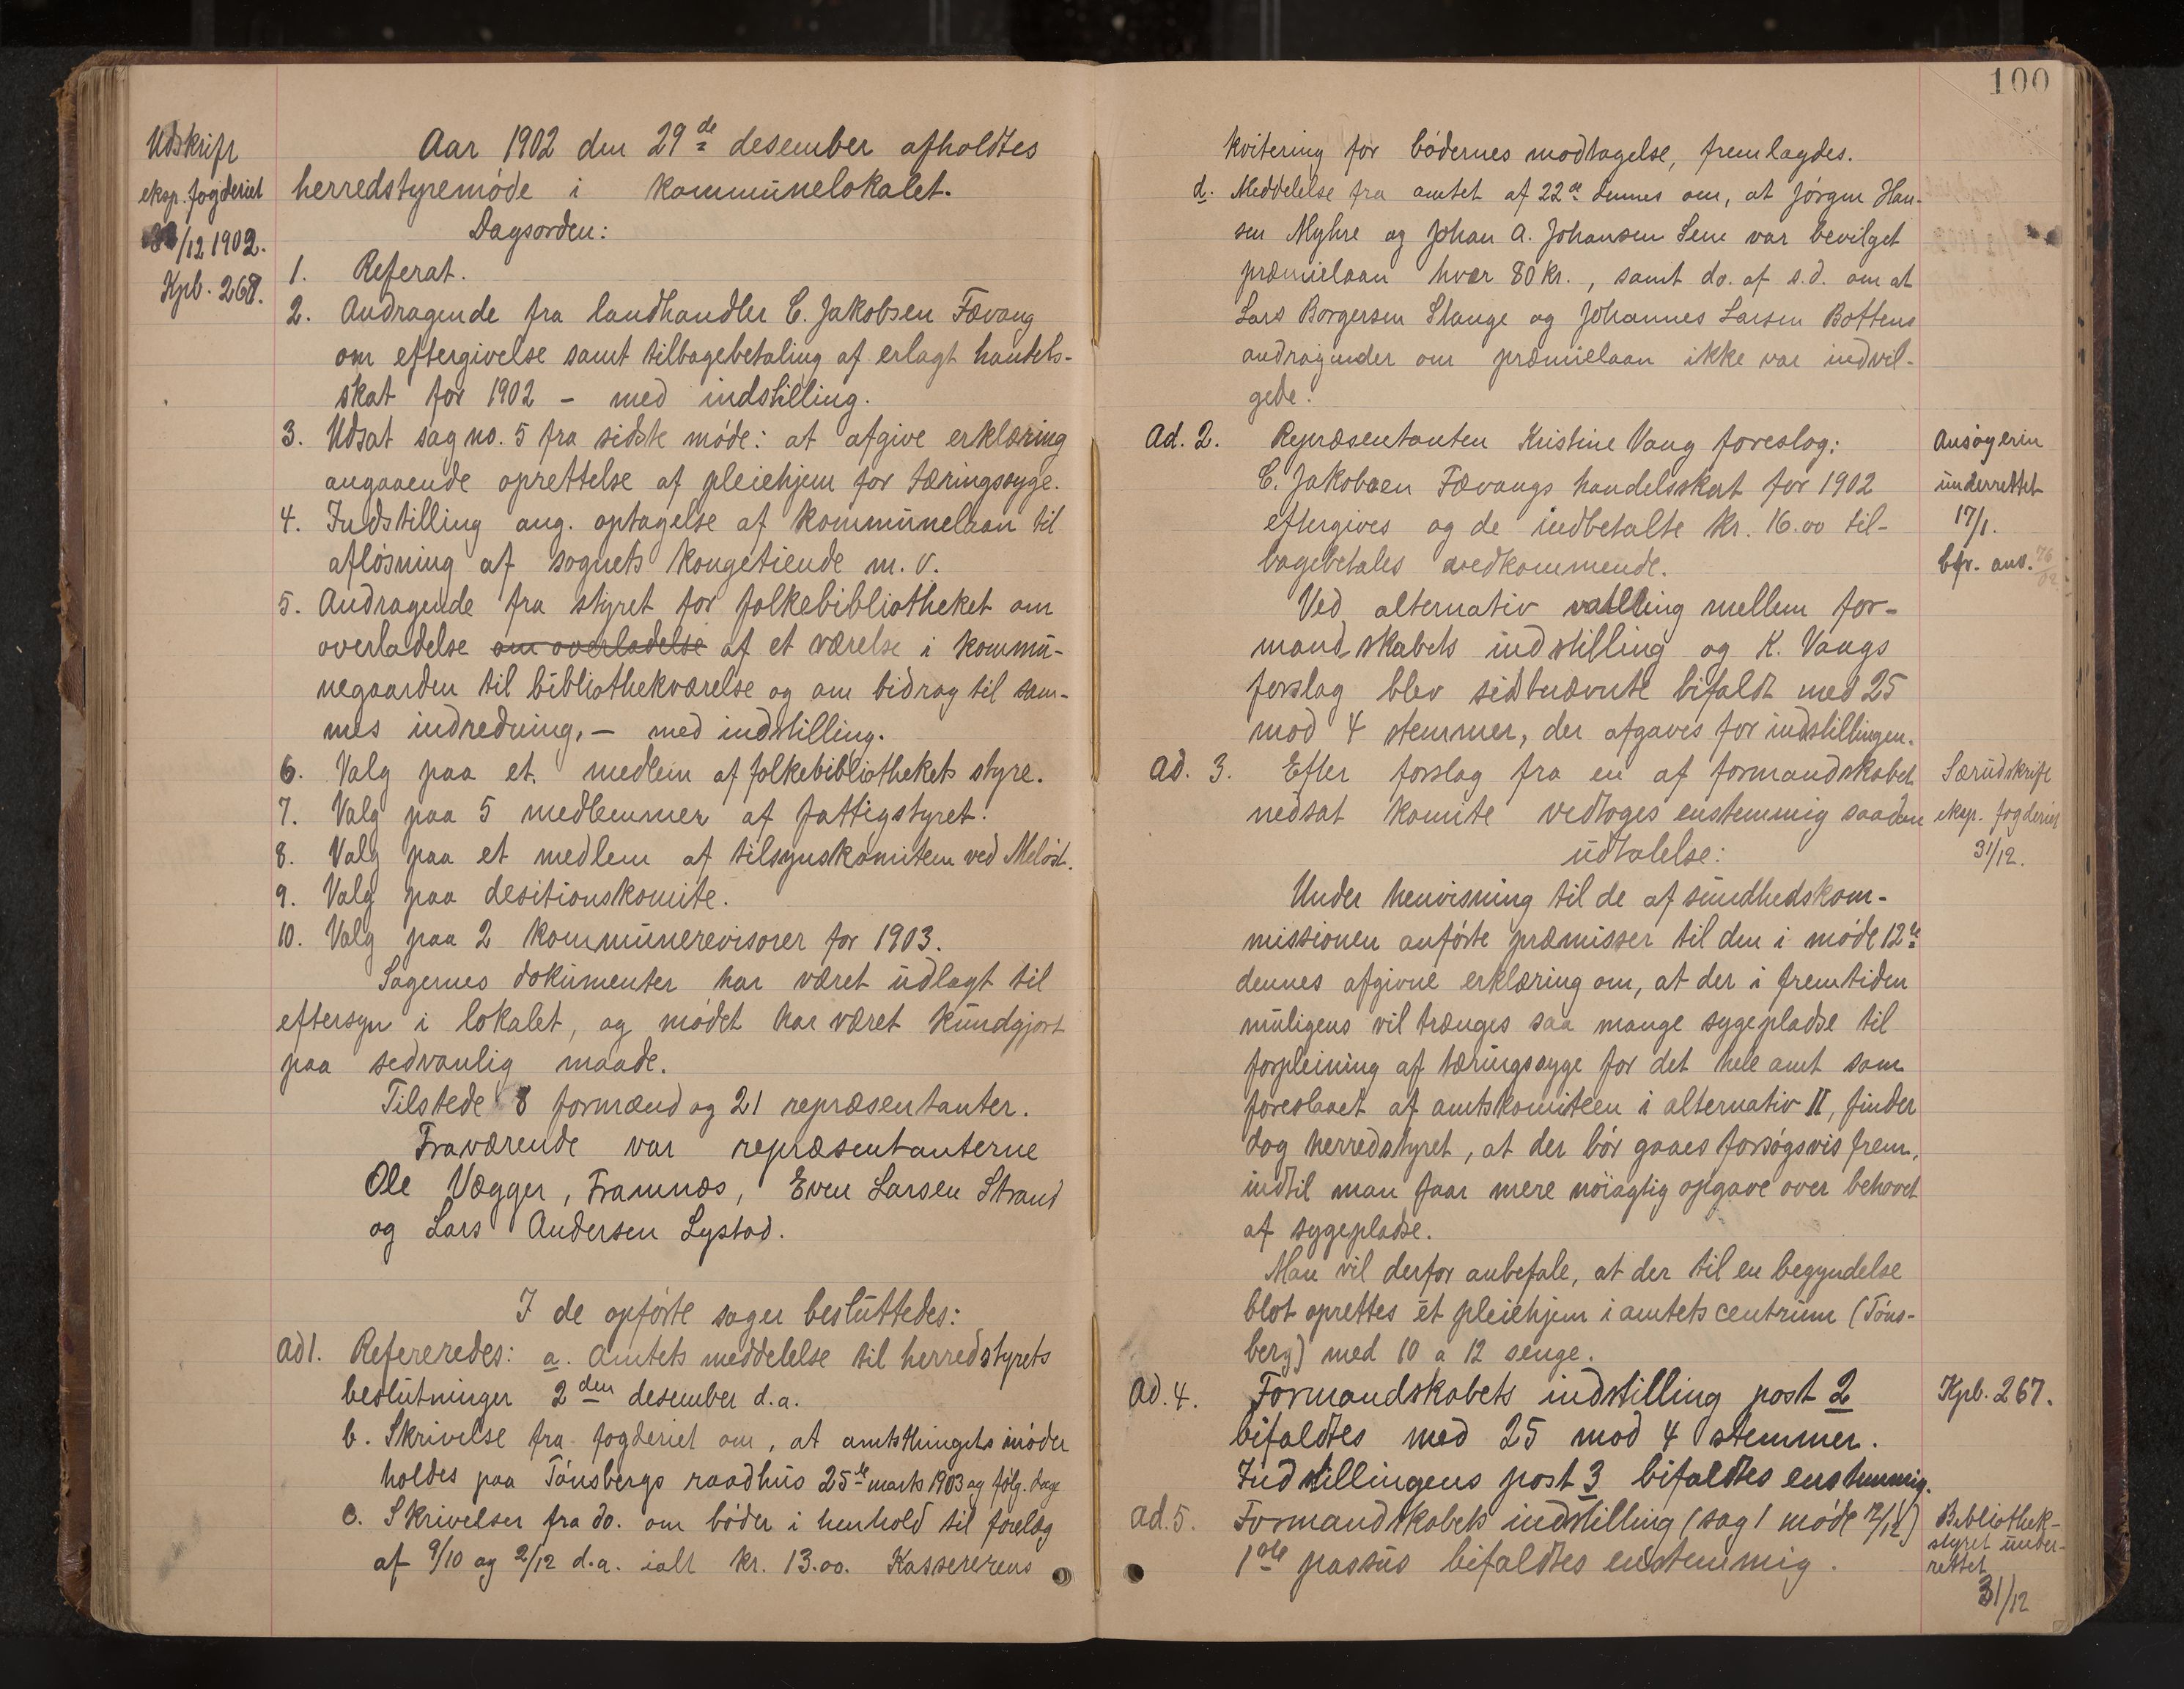 Udskrift
eksp. fogderiet
/12 1902.
Kpb. 268.
Aar 1902 den 29de desember afholdtes
herredstyremöde i kommunelokalet.
Dagsorden:
1. Referat.
2. Andragende fra landhandler C. Jakobsen Fævang
om eftergivelse samt tilbagebetaling af erlagt handels-
skat for 1902 - med indstilling.
3. Udsat sag no. 5 fra sidste möde: at afgive erklæring
angaaende oprettelse af pleiehjem for tæringssyge.
4. Indstilling ang. optagelse af kommunelaan til
aflösning af sognets kongetiende m. v.
5. Andragende fra styret for folkebibliotheket om
overladelse om overladelse af et værelse i kommu-
negaarden til bibliothekværelse og om bidrag til sam-
mes indredning, - med indstilling.
6. Valg paa et medlem af folkebibliothekets styre.
7. Valg paa 5 medlemmer af fattigstyret.
8. Valg paa et medlem af tilsynskomiteen ved Melöst.
9. Valg paa desitionskomite.
10. Valg paa 2 kommunerevisorer for 1903.
Sagernes dokumenter har været udlagt til
eftersyn i lokalet, og mödet har været kundgjort
paa sedvanlig maade.
Tilstede 8 formænd og 21 repræsentanter.
Fraværende var repræsentanterne
Ole Vægger, Framnæs, Even Larsen Strand
og Lars Andersen Lystad.
I de opförte sager besluttedes:
ad 1. Refereredes: a. Amtets meddelelse til herredstyrets
beslutninger 2den desember d.a.
b. Skrivelse fra fogderiet om, at amtsthingets möder
holdes paa Tönsbergs raadhus 25de marts 1903 og fölg. dage
c. Skrivelser fra do. om böder i henhold til forelæg
af 9/10 og 2/12 d.a. ialt kr. 13.00. Kassererens
100
kvitering for bödernes modtagelse, fremlagdes.
d. Meddelelse fra amtet af 22de dennes om, at Jörgen Han-
sen Myhre og Johan A. Johansen Sene var bevilget
præmielaan hver 80 kr., samt do. af s.d. om at
Lars Borgersen Stange og Johannes Larsen Bottens
andragender om præmielaan ikke var indvil-
gede.
Ad. 2. Repræsentanten Kristine Vang foreslog:
C. Jakobsen Fævangs handelsskat for 1902
eftergives og de indbetalte kr. 16.00 til-
bagebetales vedkommende.
Ansögerin
underrettet
17/1.
bfr. anv. 76/02
Ved alternativ votering mellem for-
mandskabets indstilling og K. Vangs
forslag blev sidstnævnte bifaldt med 25
mod 4 stemmer, der afgaves for indstillingen.
ad. 3. Efter forslag fra en af formandskabet
nedsat komite vedtoges enstemmig saadan
udtalelse:
Særudskrift
eksp. fogderiet
31/12.
Under henvisning til de af sundhedskom-
missionen anförte præmisser til den i möde 12te
dennes afgivne erklæring om, at der i fremtiden
muligens vil trænges saa mange sygepladse til
forpleining af tæringssyge for det hele amt som
foreslaaet af amtskomiteen i alternativ II, finder
dog herredstyret, at der bör gaaes forsögsvis frem,
indtil man faar mere nöiagtig opgave over behovet
af sygepladse.
Man vil derfor anbefale, at der til en begyndelse
blot oprettes et pleiehjem i amtets centrum (Töns-
berg) med 10 a 12 senge.
ad. 4. Formandskabets indstilling post 2
bifaldtes med 25 mod 4 stemmer.
Indstillingens post 3 bifaldtes enstemmig.
Kpb. 267.
ad. 5. Formandskabets indstilling (sag 1 möde 12/12)
1ste passus bifaldtes enstemmig.
Bibliothek-
styret under-
rettet
31/12